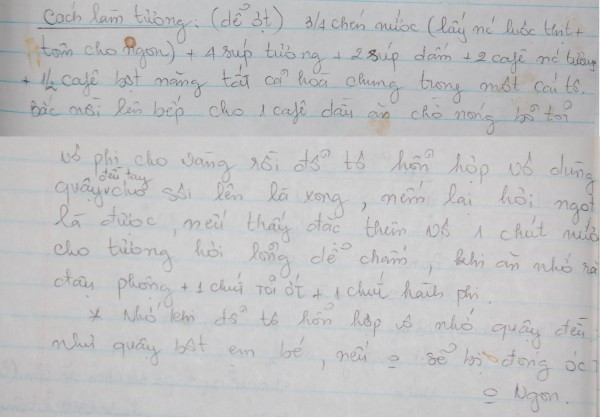 Cách làm tương: (dễ ợt) 3/4 chén nước (lấy nc luộc thịt +
tôm cho ngon) + 4 súp tương + 2 súp dấm + 2 café nc tương
+ 1/2 café bột năng tất cả hoà chung trong một cái tô.
Bắc nồi lên bếp cho 1 café dầu ăn chờ nóng bỏ tỏi
vô phi cho vàng rồi đổ tô hỗn hợp vô dùng
quậy đều tay cho sôi lên là xong, nêm lại hơi ngọt
là được, nếu thấy đặc thêm vô 1 chút nước
cho tương hơi lỏng dễ chấm, khi ăn nhớ rắc
đậu phộng + 1 chút tỏi ớt + 1 chút hành phi.
* Nhớ khi đổ tô hỗn hợp vô nhớ quậy đều
như quậy bột em bé, nếu o sẽ bị đóng óc
o Ngon.